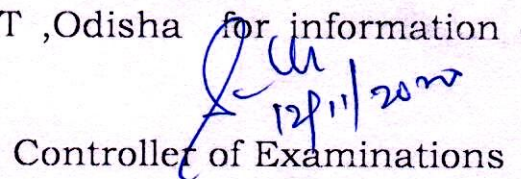 T ,Odisha for information
12/11/2020
Controller of Examinations